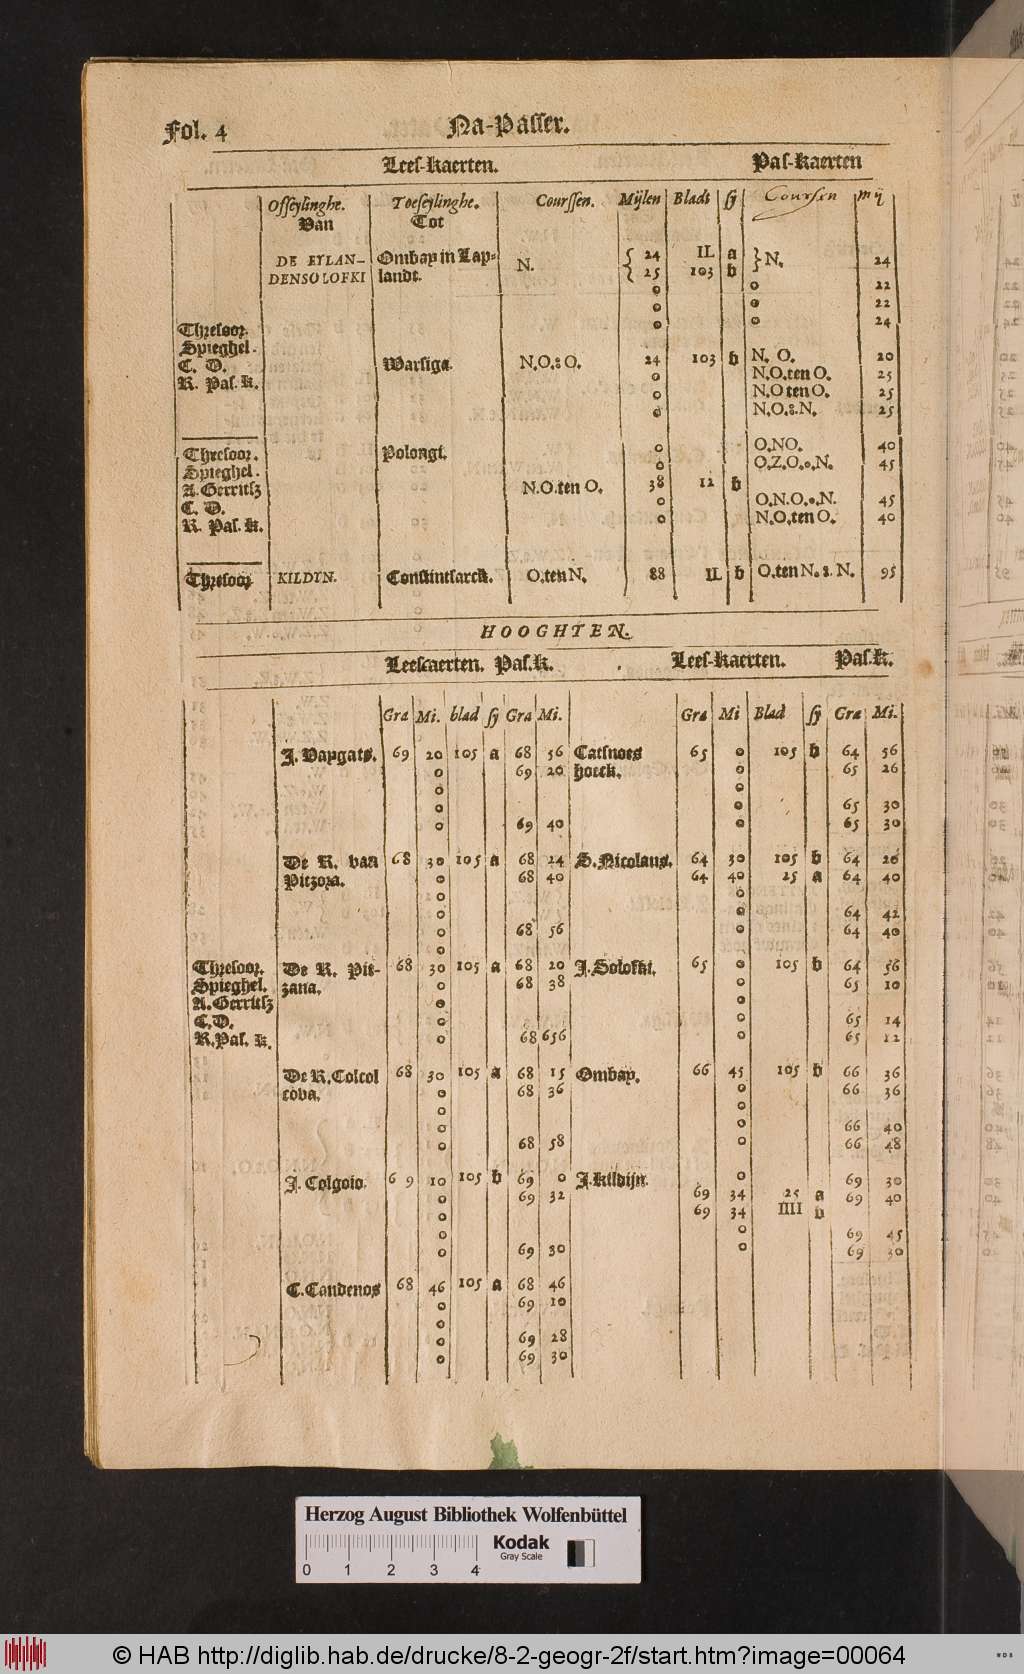 Fol. 4 Na-Passer.
Lees-kaerten. Pas-kaerten
Offeylinghe. Toeseylinghe. Courssen. Mijlen Bladt sy Courssen mij
Van Tot
DE EYLAN- Ombay in Lap- N. 24 IL a N. 24
DENSOLOFKI landt. 25 103 b
o o 22
o o 22
o o 24
Thresoor.
Spieghel.
C. D. Warsiga. N.O.: O. 24 103 b N. O. 20
R. Pas. k. o N.O.ten O. 25
o N.O ten O. 25
o N.O.:.N. 25
Thresoor. Polongi. o O.NO. 40
Spieghel. o O.Z.O.o.N. 45
A. Gerritsz N.O.ten O. 38 12 b
C. D. o O.N.O.o.N. 45
R. Pas. k. o N.O.ten O. 40
Thresoor KILDYN. Constintsarck. O.ten N. 88 IL b O.ten N.:. N. 95
HOOGHTEN.
Leescaerten. Pas.k. Lees-kaerten. Pas.k.
Gra Mi. blad sy Gra Mi. Gra Mi Blad sy Gra Mi.
J. Vaygats. 69 20 105 a 68 56 Catsnoes 65 o 105 b 64 56
o 69 20 hoeck. o 65 26
o o
o o 65 30
o 69 40 o 65 30
De R. van 68 30 105 a 68 24 S. Nicolaus. 64 30 105 b 64 26
Pitzora. o 68 40 64 40 25 a 64 40
o o
o o 64 42
o 68 56 o 64 40
Thresoor. De R. Pit- 68 30 105 a 68 20 J. Solofki. 65 o 105 b 64 56
Spieghel. zana. o 68 38 o 65 10
A. Gerritsz o o
C. D. o o 65 14
R. Pas. k. o 68 656 o 65 12
De R. Colcol 68 30 105 a 68 15 Ombay. 66 45 105 b 66 36
cova. o 68 36 o 66 36
o o
o o 66 40
o 68 58 o 66 48
J. Colgoio. 6 9 10 105 b 69 o J. kildijn. o 69 30
o 69 32 69 34 25 a 69 40
o 69 34 IIII b
o o 69 45
o 69 30 o 69 30
C. Candenos 68 46 105 a 68 46
o 69 10
o
o 69 28
o 69 30
Herzog August Bibliothek Wolfenbüttel
Kodak
Gray Scale
0 1 2 3 4
© HAB http://diglib.hab.de/drucke/8-2-geogr-2f/start.htm?image=00064